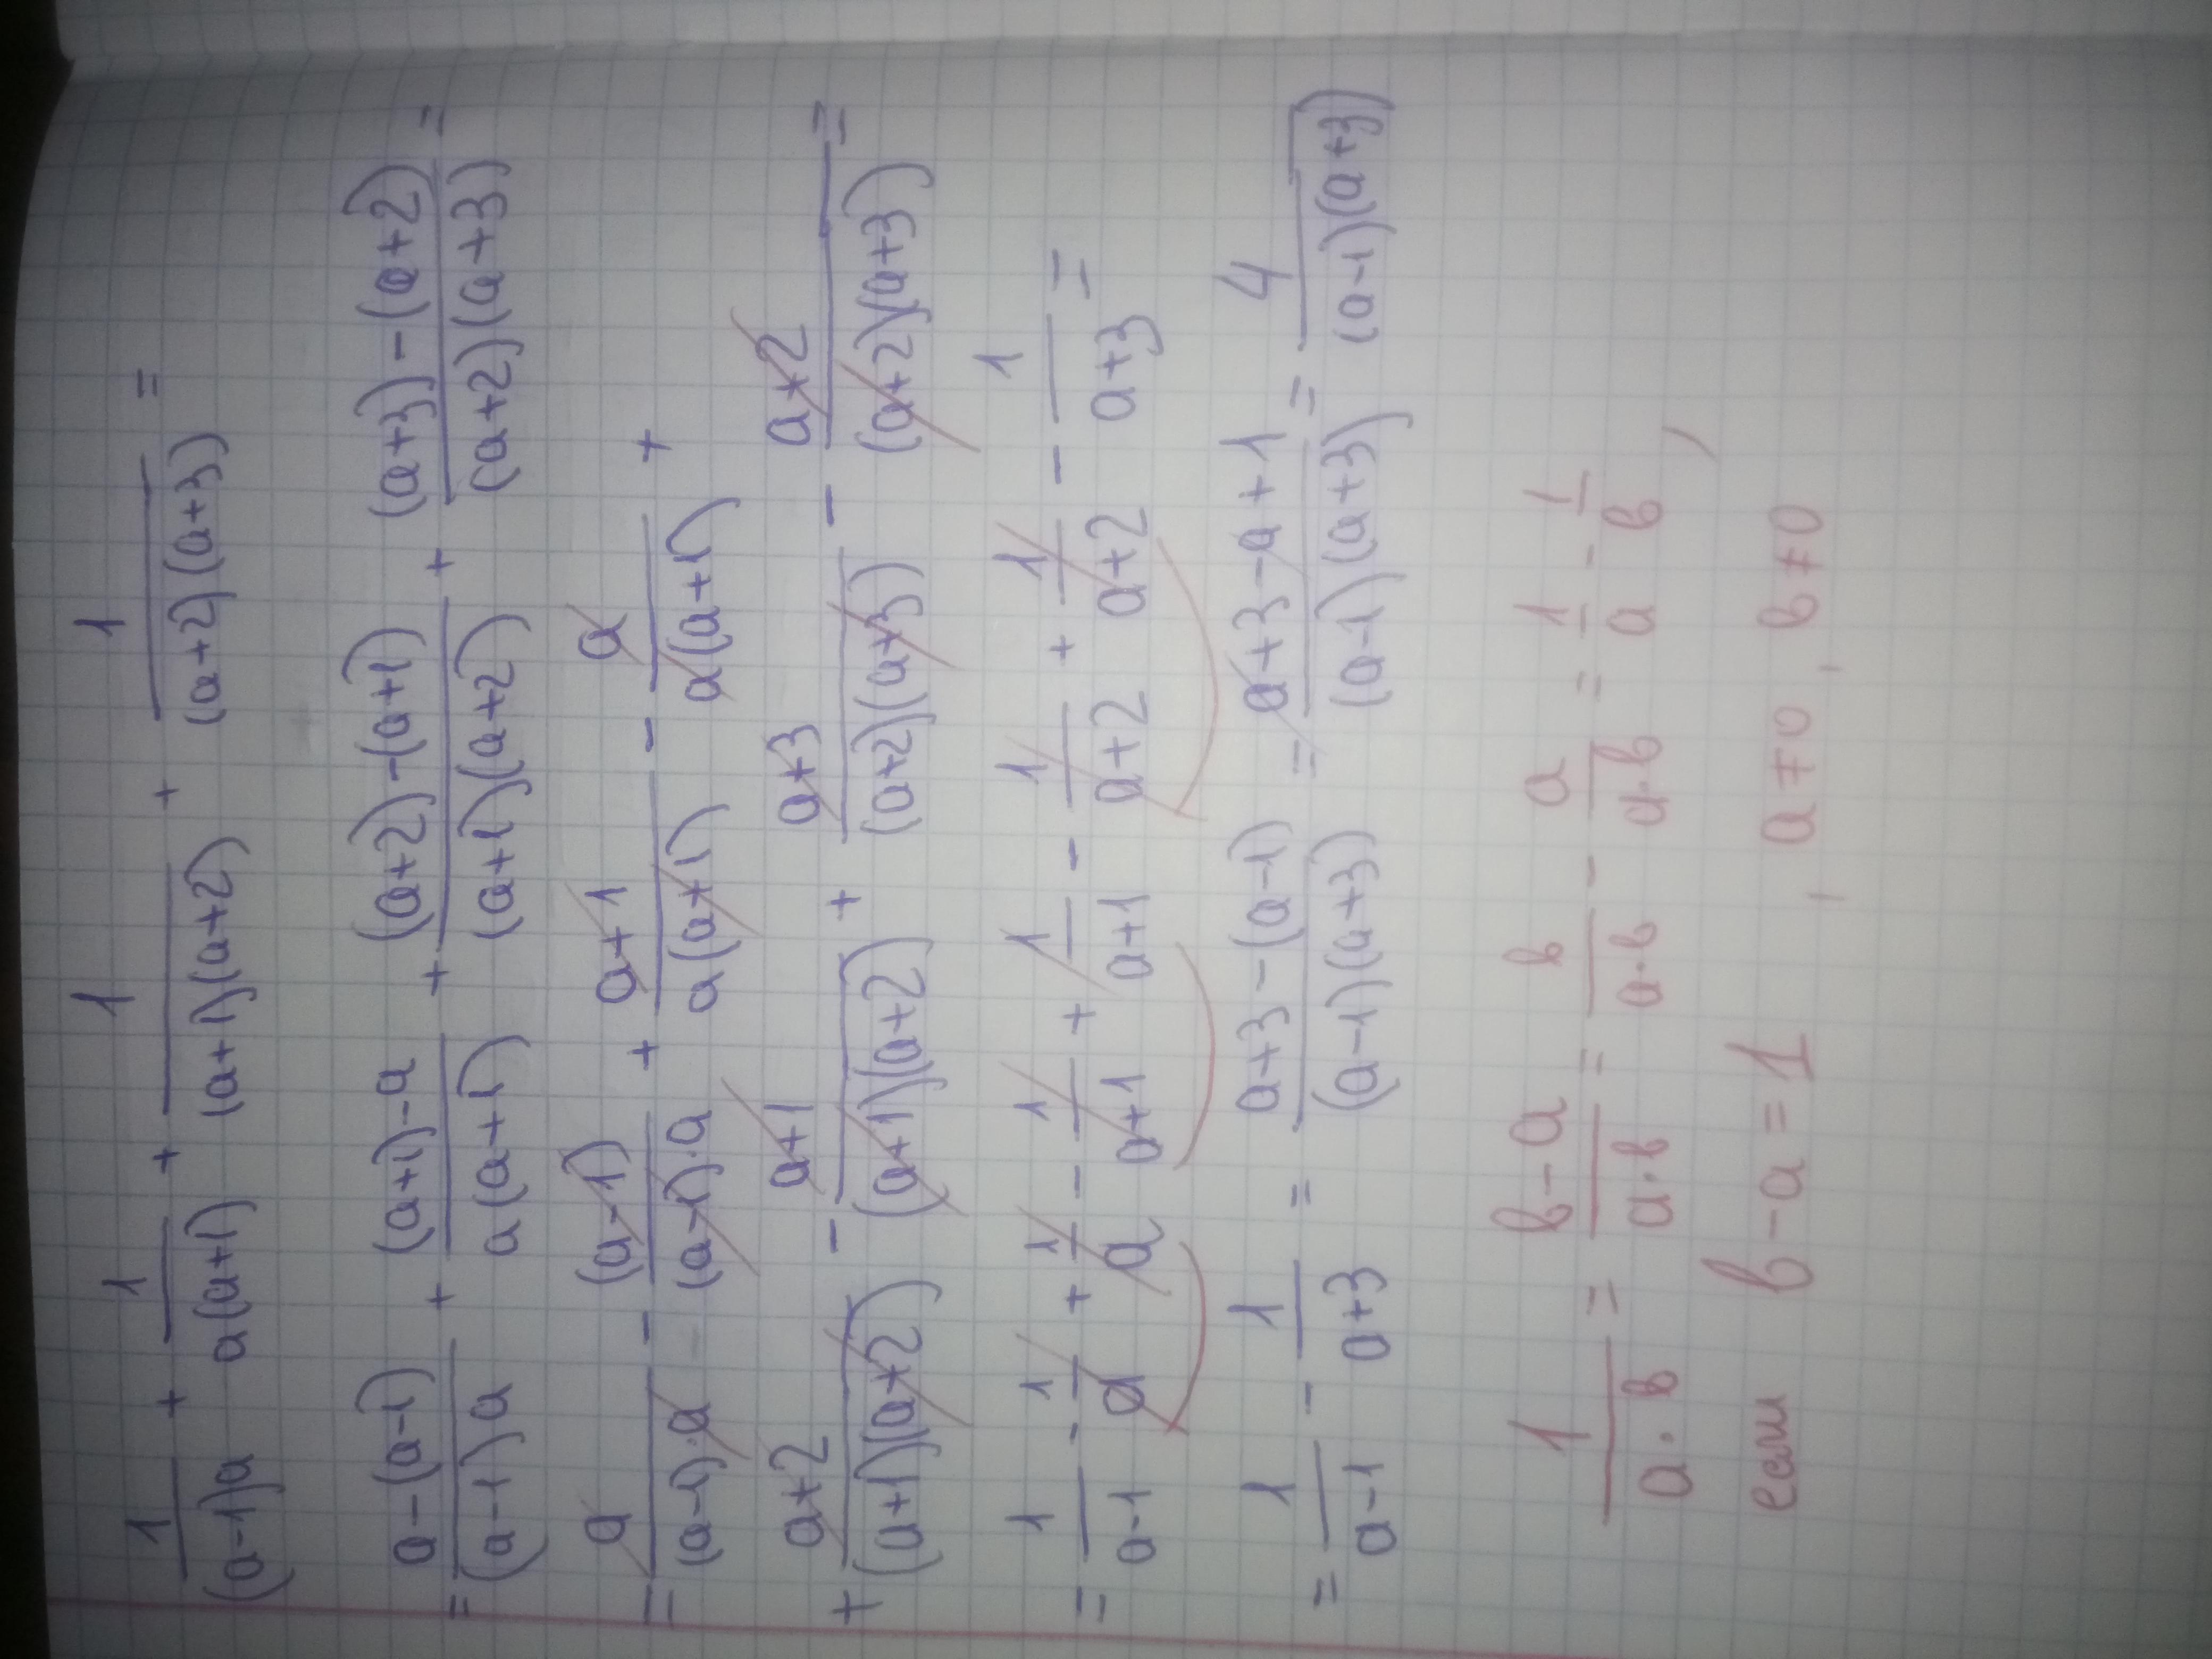 1/((a-1)a) + 1/(a(a+1)) + 1/((a+1)(a+2)) + 1/((a+2)(a+3)) =
= (a-(a-1))/((a-1)a) + ((a+1)-a)/(a(a+1)) + ((a+2)-(a+1))/((a+1)(a+2)) + ((a+3)-(a+2))/((a+2)(a+3)) =
= a/((a-1)·a) - (a-1)/((a-1)·a) + (a+1)/(a(a+1)) - a/(a(a+1)) +
+ (a+2)/((a+1)(a+2)) - (a+1)/((a+1)(a+2)) + (a+3)/((a+2)(a+3)) - (a+2)/((a+2)(a+3)) =
= 1/(a-1) - 1/a + 1/a - 1/(a+1) + 1/(a+1) - 1/(a+2) + 1/(a+2) - 1/(a+3) =
= 1/(a-1) - 1/(a+3) = (a+3-(a-1))/((a-1)(a+3)) = (a+3-a+1)/((a-1)(a+3)) = 4/((a-1)(a+3))
1/(a·в) = (в-a)/(a·в) = в/(a·в) - a/(a·в) = 1/a - 1/в ,
если в-a=1 , a≠0 , в≠0